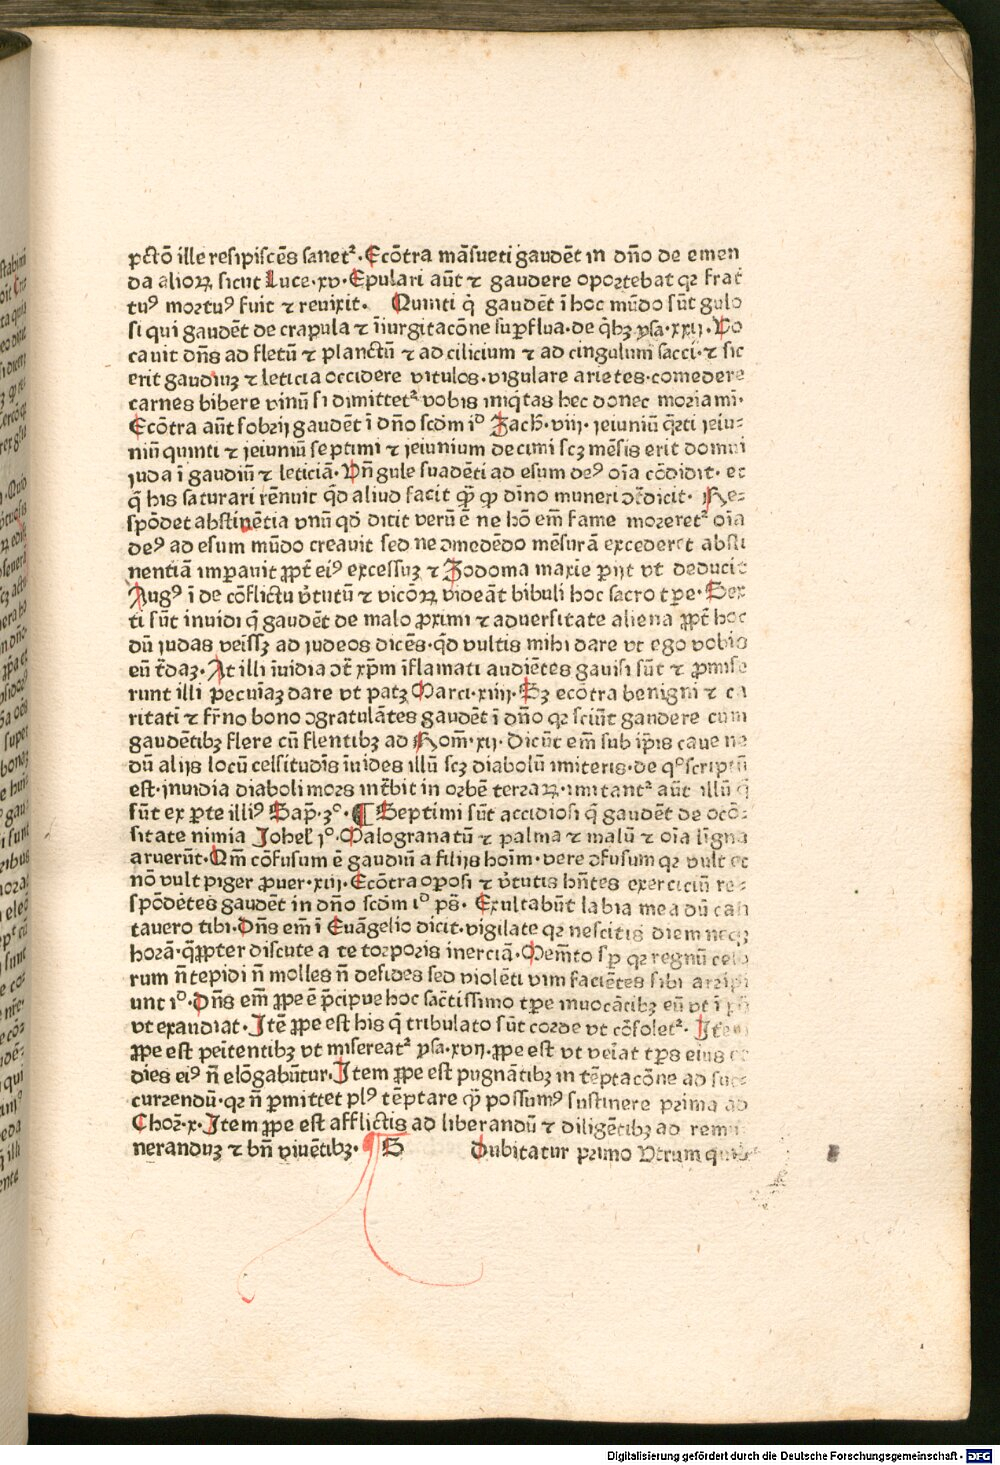 pctō ille resipiscēs sanetᷣ. Ecōtra māsueti gaudēt in dn̄o de emen
da alioꝝ sicut Luce.xv. Epulari aūt ⁊ gaudere oportebat qꝛ frat̄
tuꝰ mortuꝰ fuit ⁊ reuixit. Quinti q̄ gaudēt ī hoc mūdo sūt gulo
si qui gaudēt de crapula ⁊ īiurgitacōne suꝑflua. de q̄bꝫ ysa.xxij. Vo
cauit dn̄s ad fletū ⁊ planctū ⁊ ad cilicium ⁊ ad cingulum sacci. ⁊ sic
erit gaudiuꝫ ⁊ leticia occidere vitulos. vigulare arietes. comedere
carnes bibere vinū si dimittetᷣ vobis iniq̄tas hec donec moriamī.
Ecōtra aūt sobrij gaudēt ī dn̄o scd̄m iᵒ Zach̄. viij. ieiuniū q̄rti ieiu-
niū quinti ⁊ ieiuniū septimi ⁊ ieiunium decimi scꝫ mēsis erit domui
iuda ī gaudiū ⁊ leticiā. Vn̄ gule suadēti ad esum deꝰ oīa cōdidit. et
q̄ his saturari rēnuit qd̄ aliud facit qꝫ̄ ꝙ dīno muneri ↄt̄dicit. Re-
spōdet abstinētia vnū qd̄ dicit verū ē ne hō em̄ fame moreretᷣ oīa
deꝰ ad esum mūdo creauit sed ne ↄmedēdo mēsurā excederet absti
nentiā imꝑauit ꝓpt̄ eiꝰ excessuꝫ ⁊ Zodoma maxīe ꝑijt vt deducit
Augꝰ ī de cōflictu v̄tutū ⁊ vicōꝝ videāt bibuli hoc sacro tꝑe. Sex
ti sūt inuidi q̄ gaudēt de malo ꝓximi ⁊ aduersitate aliena ꝓpt̄ hoc
dū iudas veīssꝫ ad iudeos dicēs. qd̄ vultis mihi dare vt ego vobis
eū t̄daꝫ. At illi īuidia ↄt̄ xp̄m īflamati audiētes gauisi sūt ⁊ ꝓmise
runt illi pecuīaꝫ dare vt patꝫ Marci.xiiij. Sꝫ ecōtra benigni ⁊ ca
ritatī ⁊ fr̄no bono ↄgratulātes gaudēt ī dn̄o qꝛ sciūt gaudere cum
gaudētibꝫ flere cū flentibꝫ ad Rom̄.xij. Dicūt em̄ sub ip̄is caue ne
dū alijs locū celsitudīs īuides illū scꝫ diabolū imiteris. de qᵒ scriptū
est. inuidia diaboli mors int̄bit in orbē terraꝝ. imitantᷣ aūt illū q̄
sūt ex ꝑte illiꝰ Sap̄.3ᵒ. ¶ Septimi sūt accidiosi q̄ gaudēt de ocō-
sitate nimia Johel̄ iᵒ. Malogranatū ⁊ palma ⁊ malū ⁊ oīa lign̄a
aruerūt. Qm̄ cōfusum ē gaudiū a filijs hoīm. vere ↄfusum qꝛ vult et
nō vult piger ꝓuer.xiij. Ecōtra oꝑosi ⁊ v̄tutis hn̄tes exerciciū re-
spōdētes gaudēt in dn̄o scd̄m iᵒ ps̄. Exultabūt labia mea dū can
tauero tibi. Dn̄s em̄ ī Euāgelio dicit. vigilate qꝛ nescitis diem neqꝫ
horā. q̄ꝓpter discute a te torporis inerciā. Mem̄to sꝑ qꝛ regnū celo
rum n̄ tepidi n̄ molles n̄ desides sed violēti vim faciētes sibi arripi
unt iᵒ. Dn̄s em̄ ꝓpe ē p̄cipue hoc sāctissimo tꝑe inuocātibꝫ eū vt ī
vt exaudiat. Itē ꝓpe est his q̄ tribulato sūt corde vt cōsoletᷣ. Item
ꝓpe est peītentibꝫ vt misereatᷣ ysa.xvij. ꝓpe est vt veīat tꝑs eius et
dies eiꝰ n̄ elōgabūtur. Item ꝓpe est pugnātibꝫ in tēptacōne ad suc-
currendū. qꝛ n̄ ꝑmittet plꝰ tēptare qꝫ̄ possumꝰ sustinere prima ad
Chor̄.x. Item ꝓpe est afflictis ad liberandū ⁊ diligētibꝫ ad remu
neranduꝫ ⁊ bn̄ viuētibꝫ. ¶ S Dubitatur primo Vtrum
Digitalisierung gefördert durch die Deutsche Forschungsgemeinschaft - DFG